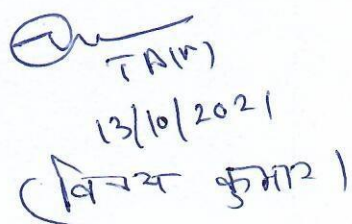 TA(M)
13/10/2021
(विनय कुमार)